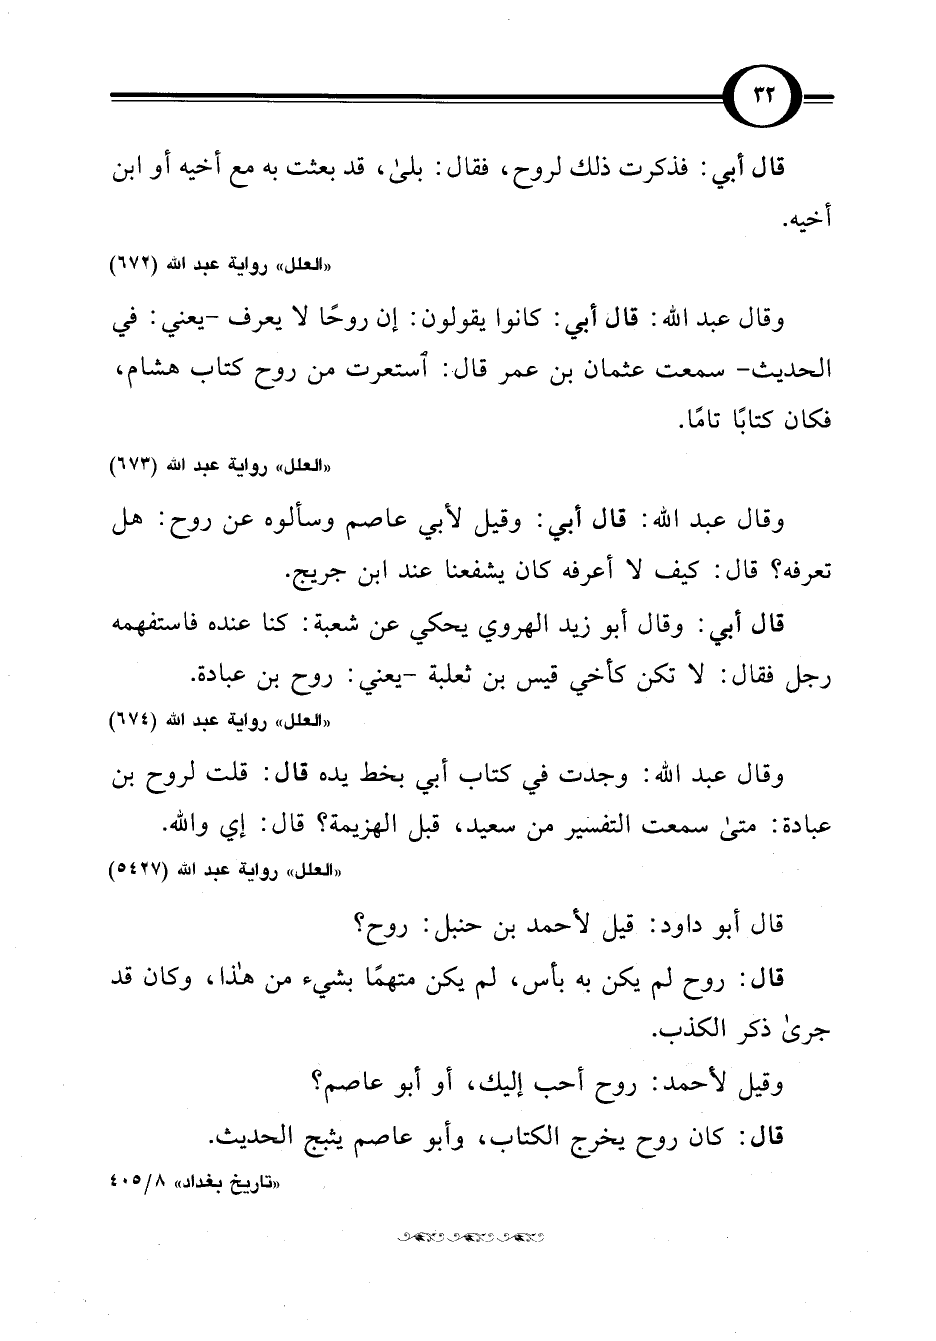 ٣٢
قال أبي: فذكرت ذلك لروح، فقال: بلىٰ، قد بعثت به مع أخيه أو ابن
أخيه.
«العلل» رواية عبد الله (٦٧٢)
وقال عبد الله: قال أبي: كانوا يقولون: إن روحًا لا يعرف -يعني: في
الحديث- سمعت عثمان بن عمر قال: ٱستعرت من روح كتاب هشام،
فكان كتابًا تامًا.
«العلل» رواية عبد الله (٦٧٣)
وقال عبد الله: قال أبي: وقيل لأبي عاصم وسألوه عن روح: هل
تعرفه؟ قال: كيف لا أعرفه كان يشفعنا عند ابن جريج.
قال أبي: وقال أبو زيد الهروي يحكي عن شعبة: كنا عنده فاستفهمه
رجل فقال: لا تكن كأخي قيس بن ثعلبة -يعني: روح بن عبادة.
«العلل» رواية عبد الله (٦٧٤)
وقال عبد الله: وجدت في كتاب أبي بخط يده قال: قلت لروح بن
عبادة: متىٰ سمعت التفسير من سعيد، قبل الهزيمة؟ قال: إي والله.
«العلل» رواية عبد الله (٥٤٢٧)
قال أبو داود: قيل لأحمد بن حنبل: روح؟
قال: روح لم يكن به بأس، لم يكن متهمًا بشيء من هذا، وكان قد
جرىٰ ذكر الكذب.
وقيل لأحمد: روح أحب إليك، أو أبو عاصم؟
قال: كان روح يخرج الكتاب، وأبو عاصم يثبج الحديث.
«تاريخ بغداد» ٤٠٥/٨